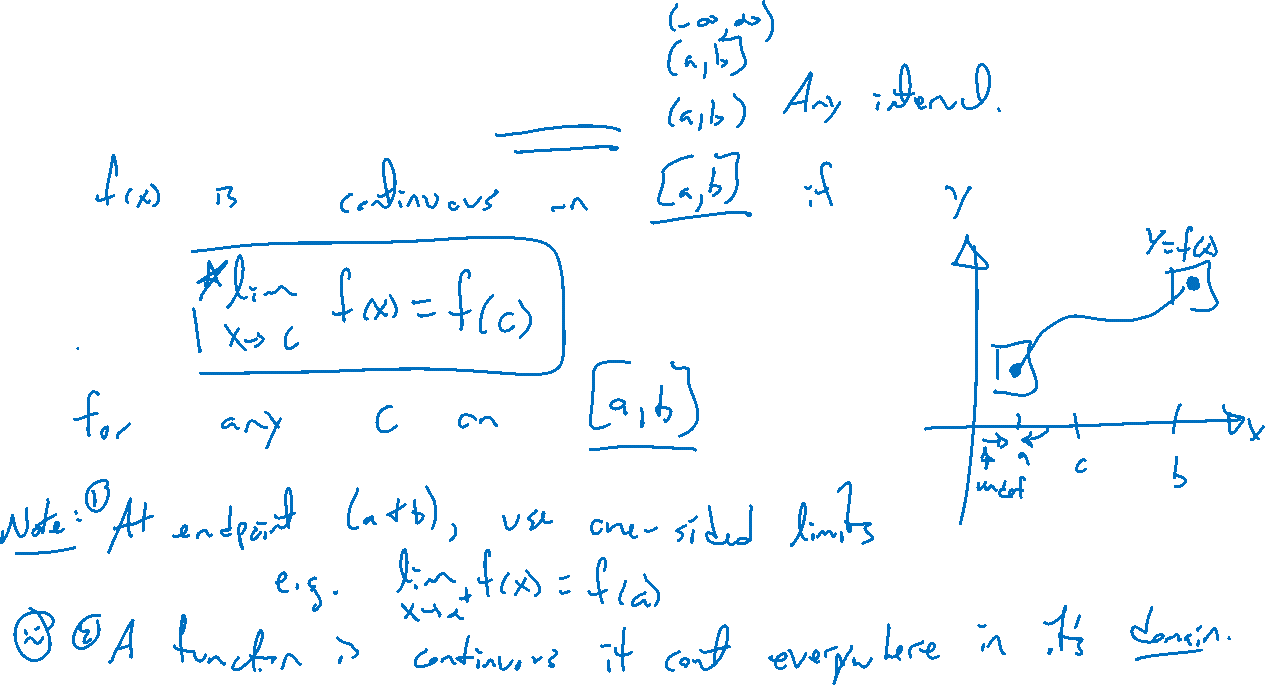 (-∞,∞)
(a,b]
(a,b) Any interval.
f(x) is continuous on [a,b] if
lim f(x) = f(c)
x→c
for any c on [a,b]
y
y=f(x)
x
a c b
undef
Note: ① At endpoint (a+b), use one-sided limits
e.g. lim f(x) = f(a)
x→a⁺
② A function is continuous if cont everywhere in it's domain.